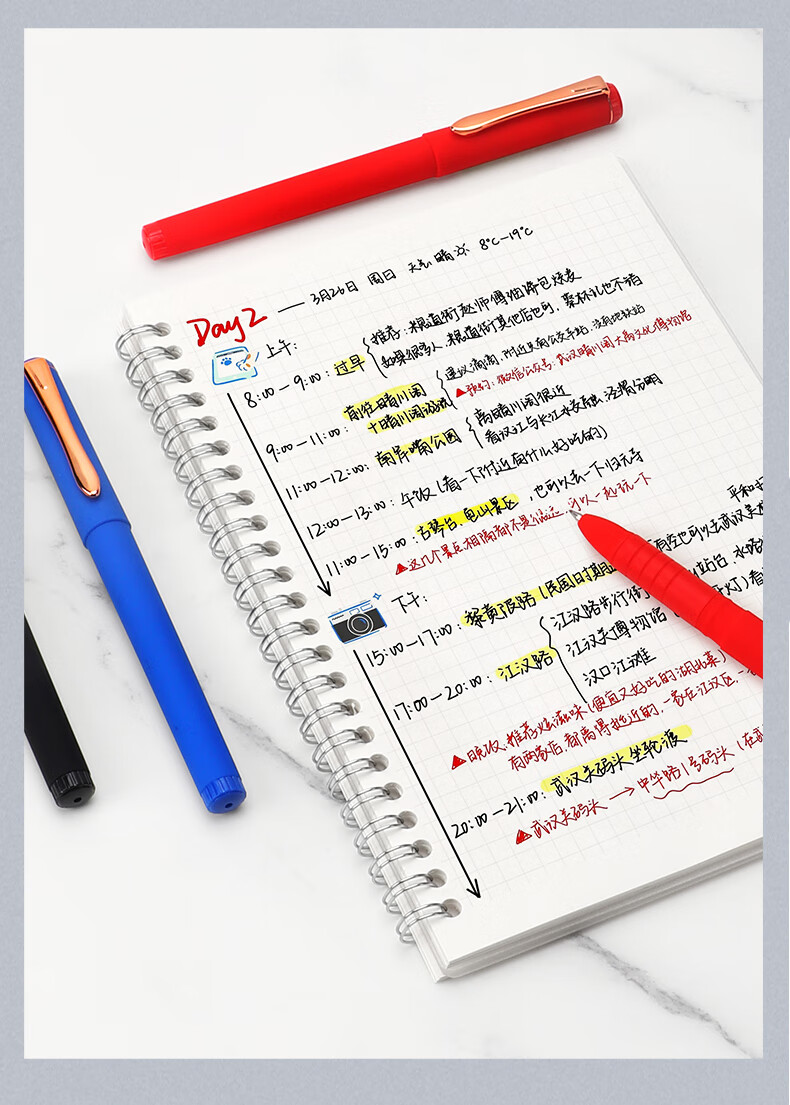 Day 2 —— 3月26日 周日 天气 晴 8℃—19℃
上午:
8:00—9:00: 过早
推荐: 粮道街赵师傅油饼包烧麦
如果很多人, 粮道街其他店也可, 蔡林记也不错
9:00—11:00: 前往晴川阁
+晴川阁游玩
建议滴滴, 附近只有公交车站, 没有地铁站
▲预约: 微信公众号: 武汉晴川阁大禹文化博物馆
11:00—12:00: 南岸嘴公园
离晴川阁很近
看汉江与长江水交融, 泾渭分明
12:00—13:00: 午饭 (看一下附近有什么好吃的)
11:00—15:00: 古琴台、龟山景区, 也可以去一下归元寺
▲这几个景点相隔都不是很远 可以一起玩一下
下午:
15:00—17:00: 黎黄陂路 (民国
有空也可以去武汉美
17:00—20:00: 江汉路
江汉路步行街
江汉关博物馆
汉口江滩
▲晚饭: 推荐 滋味 (便宜又好吃的湖北菜)
有两家店, 都离得挺近的, 一家在江汉区, 一
20:00—21:00: 武汉关码头坐轮渡
▲武汉关码头 → 中华路1号码头 (在